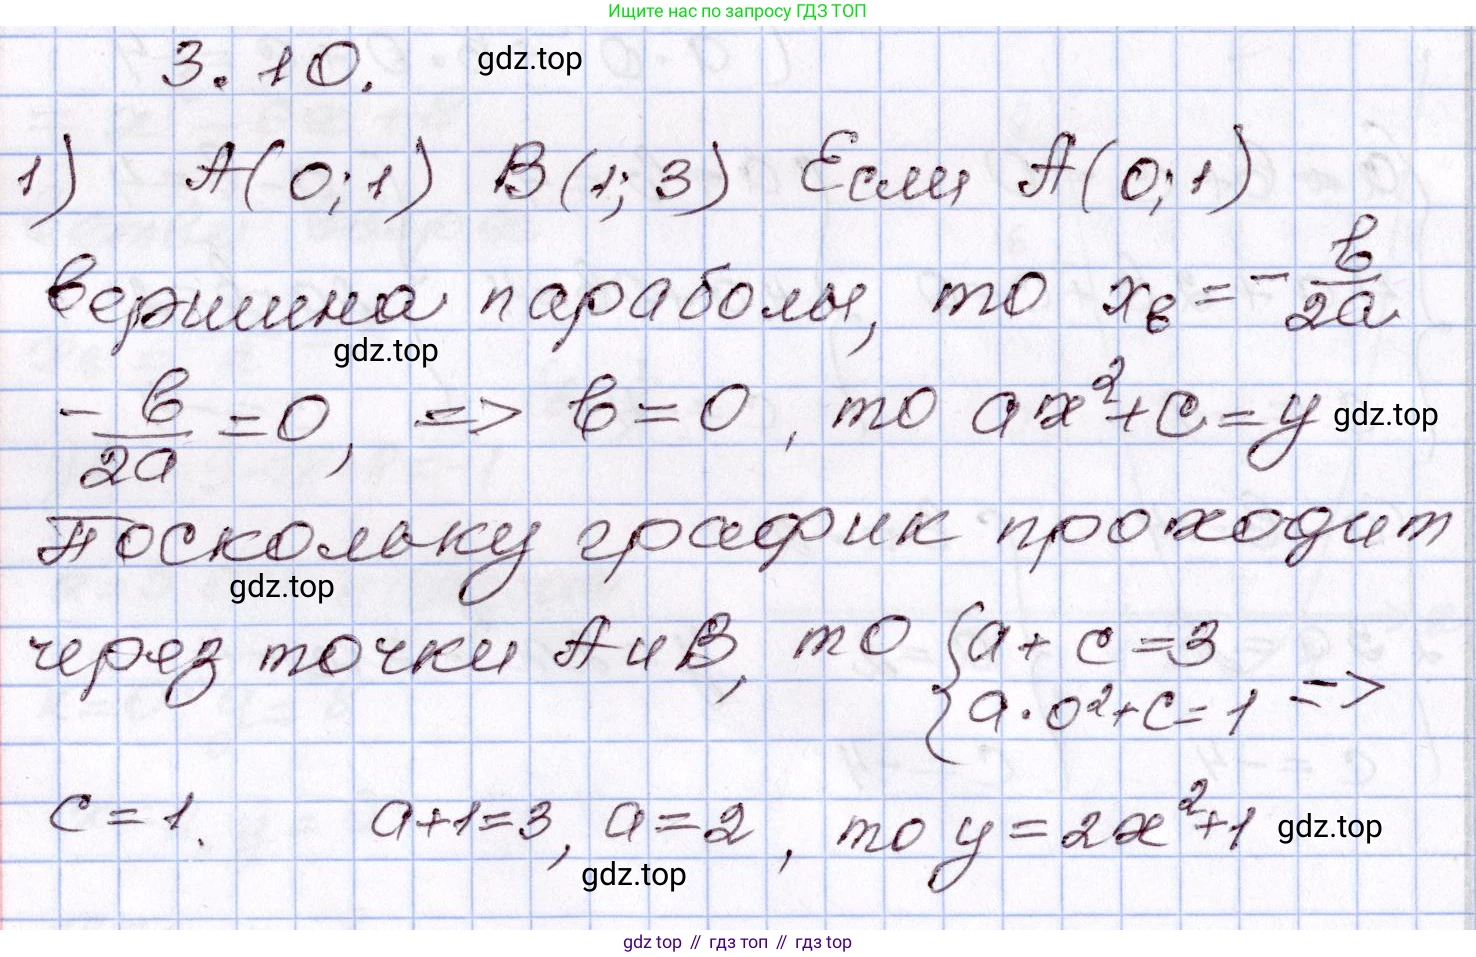 Ищите нас по запросу ГДЗ ТОП
3.10. gdz.top
1) A(0;1) B(1;3) Если A(0;1)
вершина параболы, то xв = -b/2a
gdz.top
-b/2a = 0, => b = 0, то ax²+c=y gdz.top
Поскольку график проходит
gdz.top
через точки A и B, то {a + c = 3
a·0²+c=1 =>
c = 1. a+1=3, a=2, то y=2x²+1 gdz.top
gdz.top
gdz top // гдз топ // гдз top